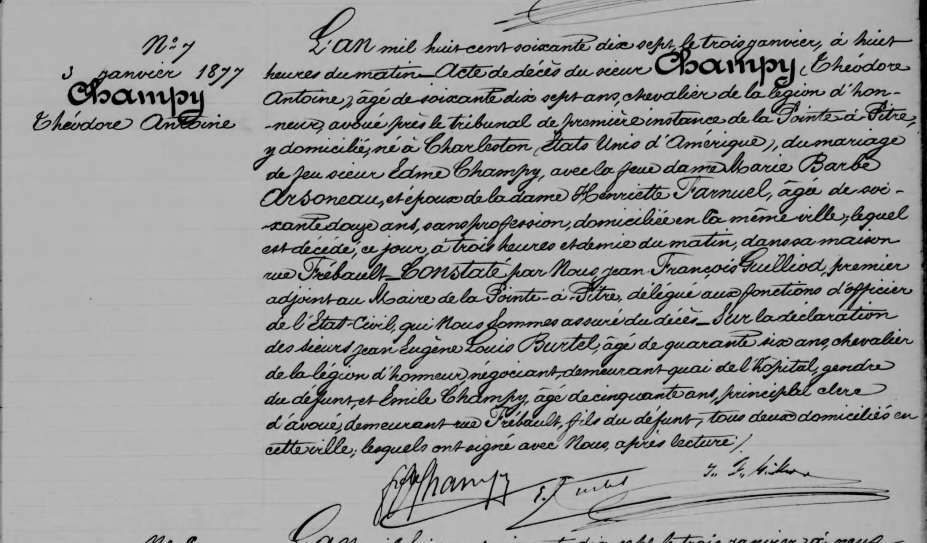 Nº 7
3 janvier 1877
Champy
Théodore Antoine
L'an mil huit cent soixante dix sept, le trois janvier, à huit
heures du matin — Acte de décès du sieur Champy (Théodore
Antoine), âgé de soixante dix sept ans, chevalier de la légion d'hon-
-neur, avoué près le tribunal de première instance de la Pointe-à-Pitre,
y domicilié, né à Charleston (États Unis d'Amérique), du mariage
de feu sieur Edme Champy, avec la feue dame Marie Barbe
Arsoneau, et époux de la dame Henriette Farnuel, âgée de soi-
-xante douze ans, sans profession, domiciliée en la même ville; lequel
est décédé, ce jour, à trois heures et demie du matin, dans sa maison
rue Frébault — Constaté par Nous, Jean François Guilliod, premier
adjoint au Maire de la Pointe-à-Pitre, délégué aux fonctions d'officier
de l'État-Civil, qui Nous sommes assuré du décès — Sur la déclaration
des sieurs Jean Eugène Louis Burtel, âgé de quarante six ans, chevalier
de la légion d'honneur, négociant, demeurant quai de l'hôpital, gendre
du défunt, et Emile Champy, âgé de cinquante ans, principal clerc
d'avoué, demeurant rue Frébault, fils du défunt, tous deux domiciliés en
cette ville; lesquels ont signé avec Nous, après lecture /.
Champy